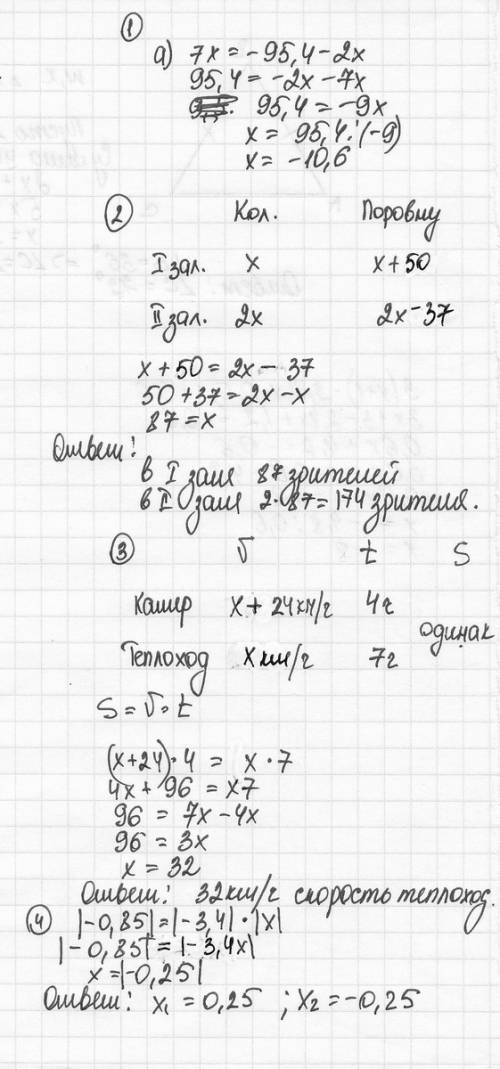 1
а) 7x = -95,4 - 2x
95,4 = -2x - 7x
95,4 = -9x
x = 95,4 : (-9)
x = -10,6
2 Кол. Поровну
I зал. x x + 50
II зал. 2x 2x - 37
x + 50 = 2x - 37
50 + 37 = 2x - x
87 = x
Ответ:
в I зале 87 зрителей
в II зале 2·87 = 174 зрителя.
3 V t S
Катер x + 24км/г 4г
одинак
Теплоход x км/г 7г
S = V · t
(x+24) · 4 = x · 7
4x + 96 = x7
96 = 7x - 4x
96 = 3x
x = 32
Ответ: 32км/г скорость теплоход.
4 |-0,85| = |-3,4| · |x|
|-0,85| = |-3,4x|
x = |-0,25|
Ответ: x₁ = 0,25 ; x₂ = -0,25